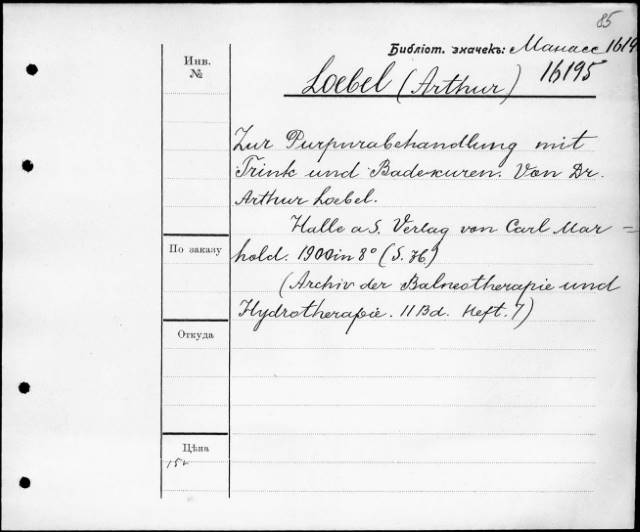 85
Библіот. значекъ: Манасс 1619
Инв.
№
16195
Loebel (Arthur)
Zur Purpurabehandlung mit
Trink und Badekuren. Von Dr.
Arthur Loebel.
Halle a S. Verlag von Carl Mar=
По заказу
hold. 1900 in 8° (S. 36)
(Archiv der Balneotherapie und
Hydrotherapie. II Bd. Heft. 7)
Откуда
Цѣна